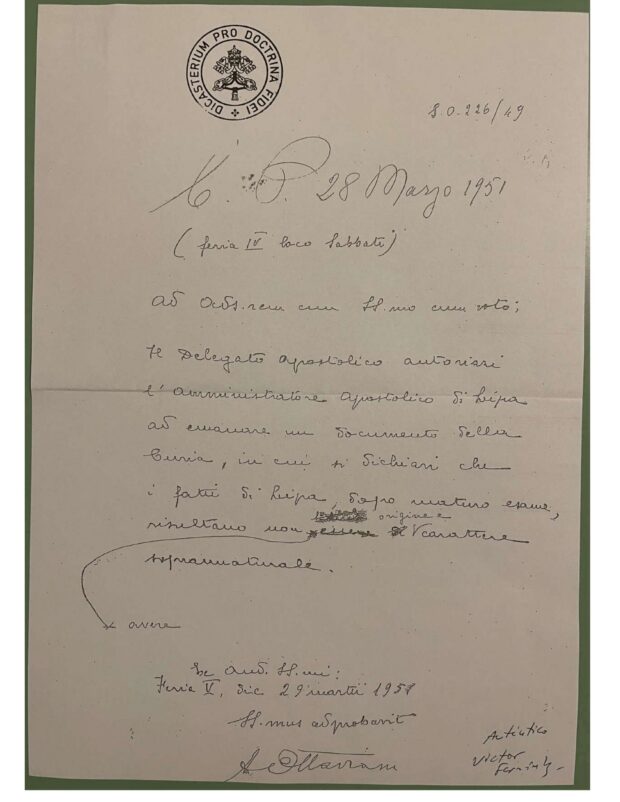 DICASTERIUM PRO DOCTRINA FIDEI
S.O. 226/49
28 Marzo 1951
(feria IV loco Sabbati)
Ad Ads. rem cum SS.mo cum voto;
Il Delegato Apostolico autorizzi
l'Amministratore Apostolico di Lipa
ad emanare un documento della
Curia, in cui si dichiari che
i fatti di Lipa, dopo maturo esame,
origine e
risultano non essere carattere
soprannaturale.
x avere
Ex Aud. SS.mi:
Feria V, die 29 martii 1951
SS.mus adprobavit
A. Ottaviani
Auténtico
Victor